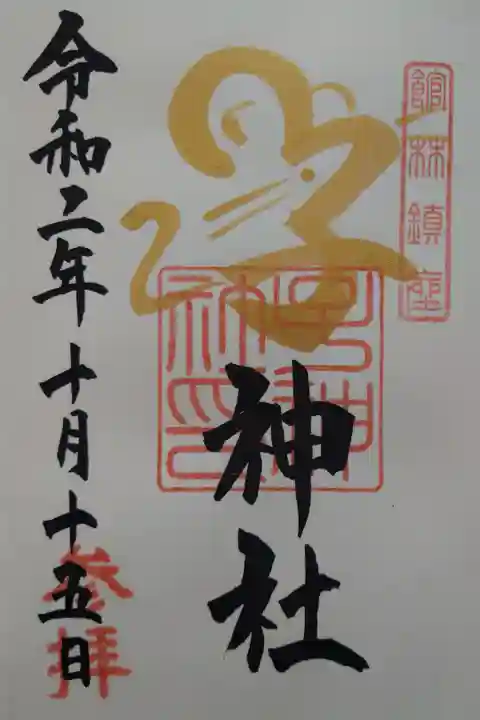 館林鎮座
子神社
子神
社印
令和二年十月十五日
参拝